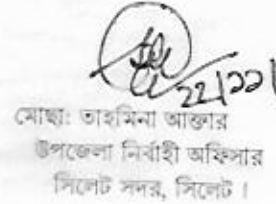 ২২|১১|
মোছা: তাহমিনা আক্তার
উপজেলা নির্বাহী অফিসার
সিলেট সদর, সিলেট।